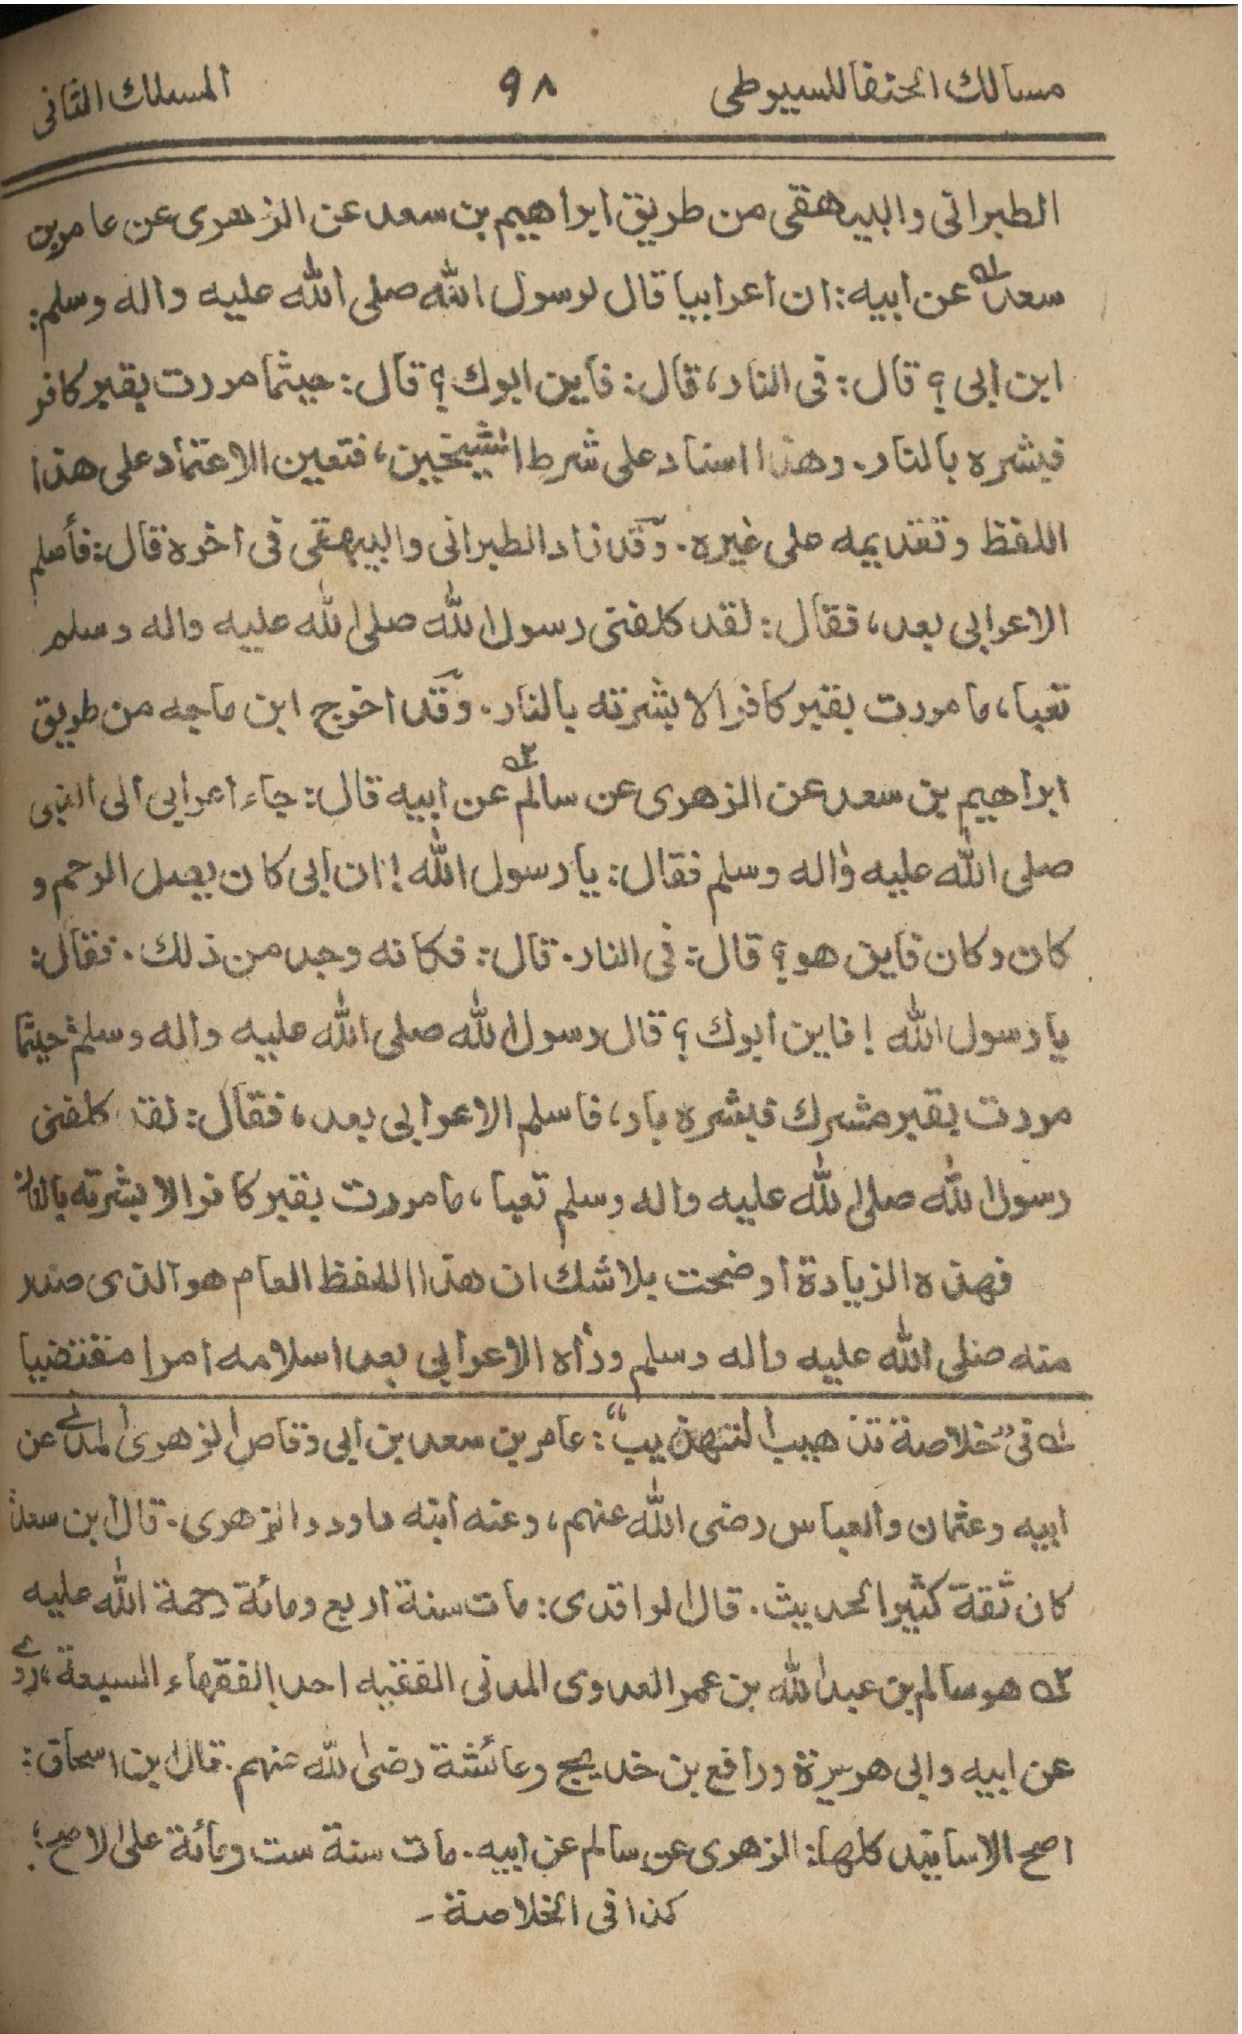 مسالك الحنفا للسيوطي ٩٨ المسلك الثانى
الطبراني والبيهقى من طريق ابراهيم بن سعد عن الزهرى عن عامر بن
سعد۱ عن ابيه: ان اعرابيا قال لرسول الله صلى الله عليه واله وسلم:
اين ابى؟ قال: فى النار، قال: فأين ابوك؟ قال: حيثما مررت بقبر كافر
فبشره بالنار. وهذا اسناد على شرط الشيخين، فتعين الاعتماد على هذا
اللفظ وتقديمه على غيره. وقد زاد الطبرانى والبيهقى فى اخره قال: فأسلم
الاعرابى بعد، فقال: لقد كلفنى رسول الله صلى الله عليه واله وسلم
تعبا، ما مررت بقبر كافر الا بشرته بالنار. وقد اخرج ابن ماجه من طريق
ابراهيم بن سعد عن الزهرى عن سالم۲ عن ابيه قال: جاء اعرابى الى النبى
صلى الله عليه واله وسلم فقال: يا رسول الله! ان ابى كان يصل الرحم و
كان وكان فاين هو؟ قال: فى النار. قال: فكانه وجد من ذلك. فقال:
يا رسول الله! فاين ابوك؟ قال رسول الله صلى الله عليه واله وسلم: حيثما
مررت بقبر مشرك فبشره بار، فاسلم الاعرابى بعد، فقال: لقد كلفنى
رسول الله صلى الله عليه واله وسلم تعبا، ما مررت بقبر كافر الا بشرته بالنار
فهذه الزيادة اوضحت بلاشك ان هذا اللفظ العام هو الذى صدر
منه صلى الله عليه واله وسلم ورأه الاعرابى بعد اسلامه امرا مقتضيا
۱ فى "خلاصة تذهيب التهذيب": عامر بن سعد بن ابى وقاص الزهرى المدنى عن
ابيه وعثمان والعباس رضى الله عنهم، وعنه ابنه داود والزهرى. قال ابن سعد:
كان ثقة كثير الحديث. قال الواقدى: مات سنة اربع ومائة رحمة الله عليه
۲ هو سالم بن عبد الله بن عمر العدوى المدنى الفقيه احد الفقهاء السبعة، روى
عن ابيه وابى هريرة ورافع بن خديج وعائشة رضى الله عنهم. قال ابن اسحاق:
اصح الاسانيد كلها: الزهرى عن سالم عن ابيه. مات سنة ست ومائة على الاصح؛
كذا فى الخلاصة -